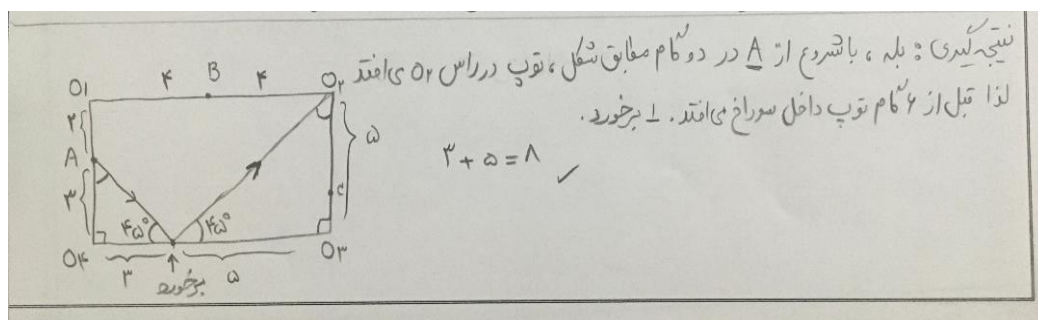 نتیجه گیری: بله، با شروع از A در دو گام مطابق شکل، توپ در راس O۲ می افتد
لذا قبل از ۶ گام توپ داخل سوراخ می افتد. ۱ برخورد.
۳ + ۵ = ۸ ✓
O۱ ۴ B ۴ O۲
۲
A
۳
۵
C
۴۵° ۴۵°
O۴ O۳
۳ ۵
برخورد